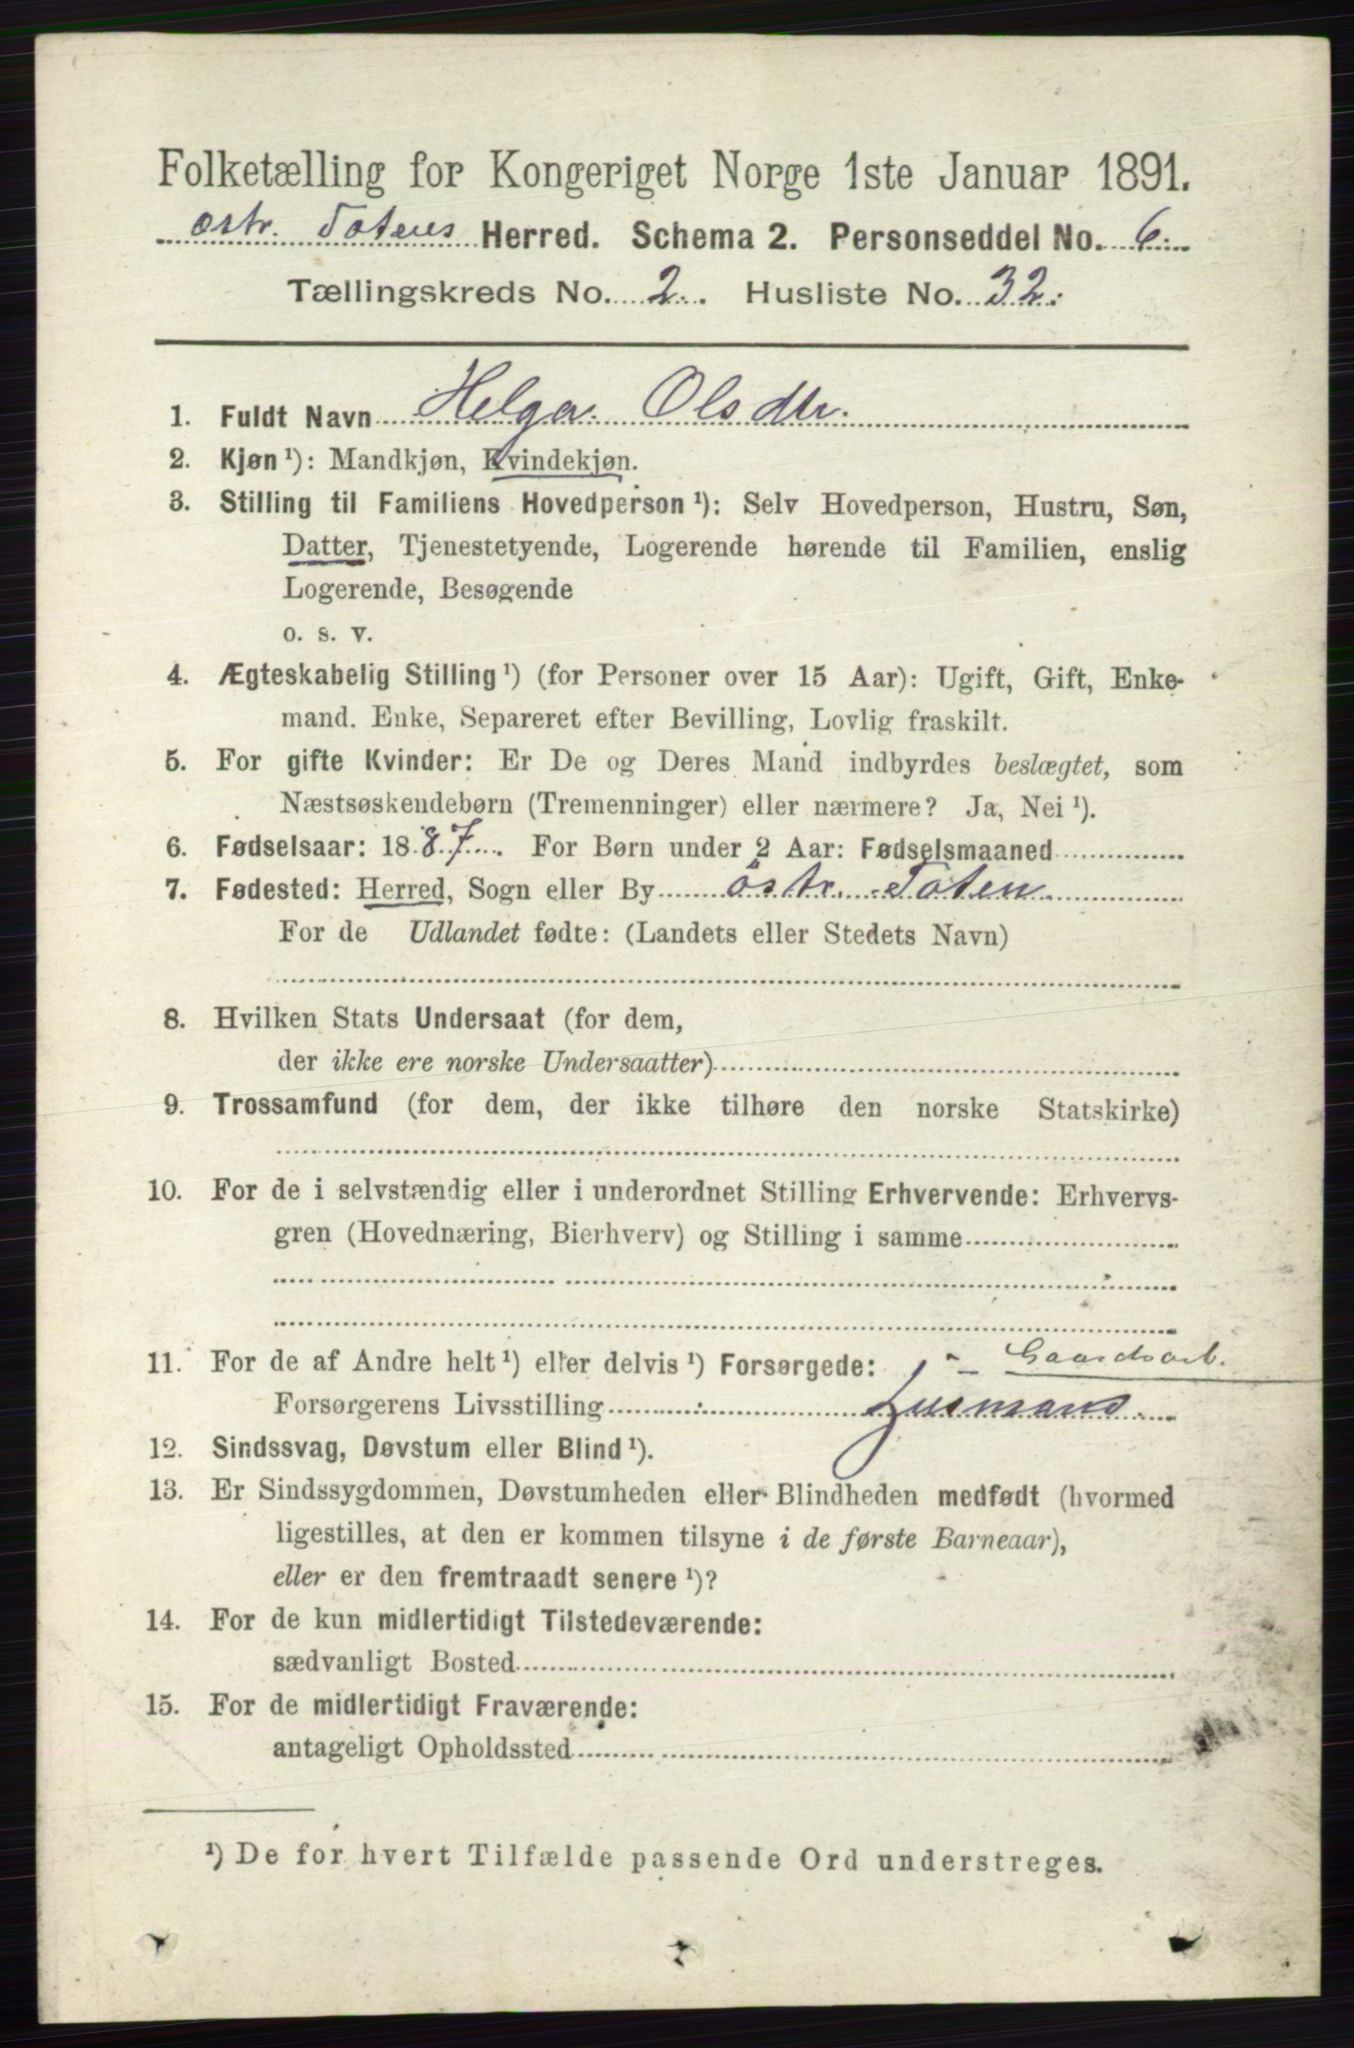 Folketælling for Kongeriget Norge 1ste Januar 1891.
østr. Totens Herred. Schema 2. Personseddel No. 6.
Tællingskreds No. 2. Husliste No. 32.
1. Fuldt Navn Helga Olsdtr.
2. Kjøn ¹): Mandkjøn, Kvindekjøn.
3. Stilling til Familiens Hovedperson ¹): Selv Hovedperson, Hustru, Søn,
Datter, Tjenestetyende, Logerende hørende til Familien, enslig
Logerende, Besøgende
o. s. v.
4. Ægteskabelig Stilling ¹) (for Personer over 15 Aar): Ugift, Gift, Enke-
mand. Enke, Separeret efter Bevilling, Lovlig fraskilt.
5. For gifte Kvinder: Er De og Deres Mand indbyrdes beslægtet, som
Næstsøskendebørn (Tremenninger) eller nærmere? Ja, Nei ¹).
6. Fødselsaar: 1887. For Børn under 2 Aar: Fødselsmaaned
7. Fødested: Herred, Sogn eller By østr. Toten
For de Udlandet fødte: (Landets eller Stedets Navn)
8. Hvilken Stats Undersaat (for dem,
der ikke ere norske Undersaatter)
9. Trossamfund (for dem, der ikke tilhøre den norske Statskirke)
10. For de i selvstændig eller i underordnet Stilling Erhvervende: Erhvervs-
gren (Hovednæring, Bierhverv) og Stilling i samme
11. For de af Andre helt ¹) eller delvis ¹) Forsørgede: Gaardsarb.
Forsørgerens Livsstilling Husmand
12. Sindssvag, Døvstum eller Blind ¹).
13. Er Sindssygdommen, Døvstumheden eller Blindheden medfødt (hvormed
ligestilles, at den er kommen tilsyne i de første Barneaar),
eller er den fremtraadt senere ¹)?
14. For de kun midlertidigt Tilstedeværende:
sædvanligt Bosted
15. For de midlertidigt Fraværende:
antageligt Opholdssted
¹) De for hvert Tilfælde passende Ord understreges.